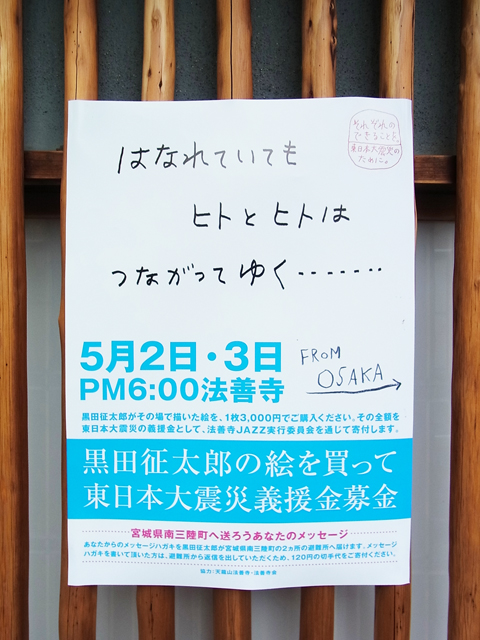 それぞれの
できることを。
東日本大震災の
ために。
はなれていても
ヒトとヒトは
つながってゆく‥‥‥‥
5月2日・3日
PM6:00法善寺
FROM
OSAKA
黒田征太郎がその場で描いた絵を、1枚3,000円でご購入ください。その全額を
東日本大震災の義援金として、法善寺JAZZ実行委員会を通じて寄付します。
黒田征太郎の絵を買って
東日本大震災義援金募金
宮城県南三陸町へ送ろうあなたのメッセージ
あなたからのメッセージハガキを黒田征太郎が宮城県南三陸町の2ヵ所の避難所へ届けます。メッセージ
ハガキを書いて頂いた方は、避難所から返信を出していただくため、120円の切手代をご寄付ください。
協力:天龍山法善寺・法善寺家